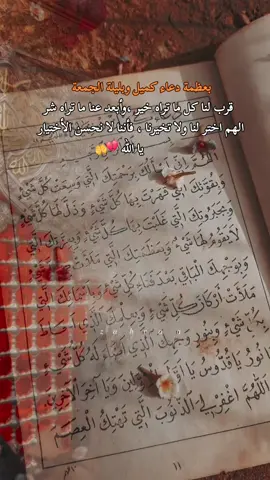 بعظمة دعاء كميل وبليلة الجمعة
قرب لنا كل ما تراه خير ،وأبعد عنا ما تراه شر
الهم اختر لنا ولا تخيرنا ، فأننا لا نحسن الأختيار
يا الله
اللهم إني أسألك برحمتك التي وسعت كل شيء
وبقوتك التي قهرت بها كل شيء وذل لها كل شيء
وبجبروتك التي غلبت بها كل شيء
لا يقوم لها شيء وبعظمتك التي
وبوجهك الباقي بعد فناء كل شيء وبأسمائك التي
ملأت أركان كل شيء وبعلمك الذي أحاط
بكل شيء وبنور وجهك الذي أضاء له كل شيء
يا نور يا قدوس يا ويا آخر الآخرين
اللهم اغفر لي الذنوب التي تهتك العصم
١١